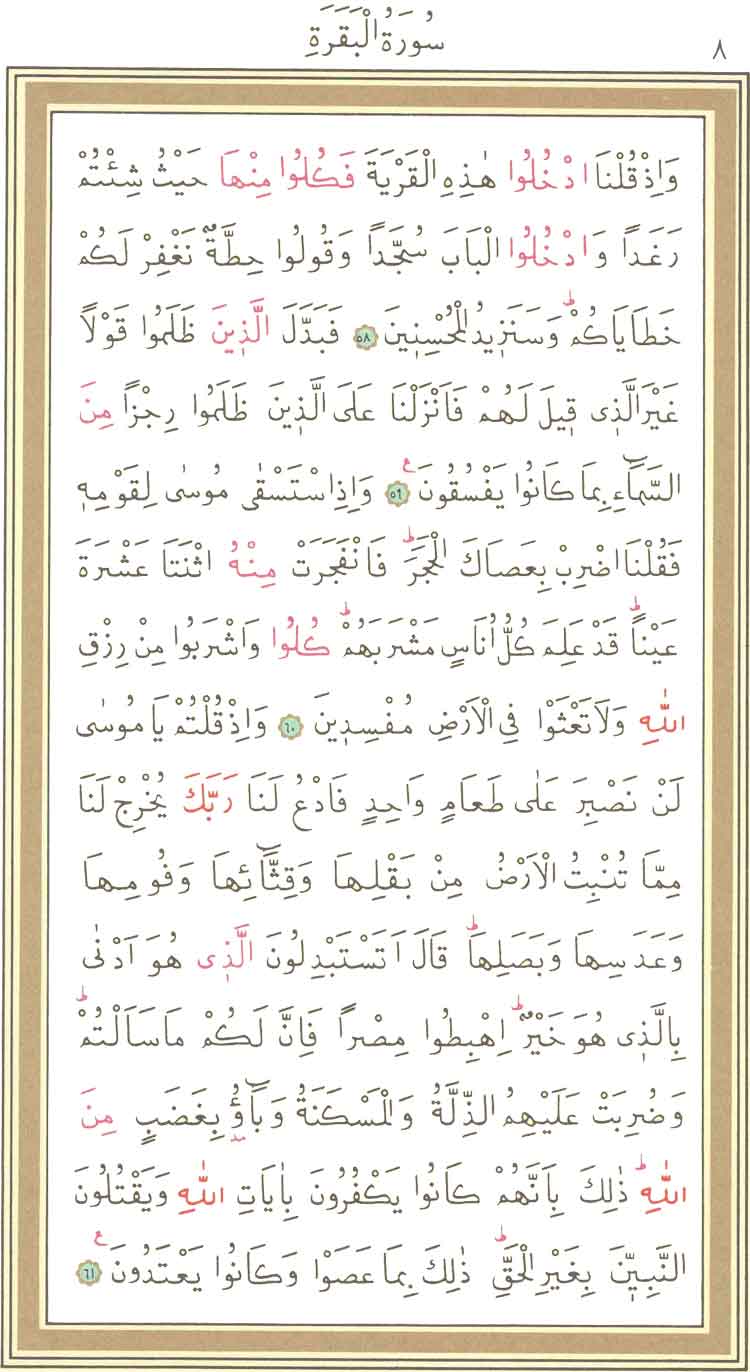 ٨
سُورَةُ الْبَقَرَةِ
وَاِذْ قُلْنَا ادْخُلُوا هٰذِهِ الْقَرْيَةَ فَكُلُوا مِنْهَا حَيْثُ شِئْتُمْ
رَغَداً وَادْخُلُوا الْبَابَ سُجَّداً وَقُولُوا حِطَّةٌ نَغْفِرْ لَكُمْ
خَطَايَاكُمْۜ وَسَنَزٖيدُ الْمُحْسِنٖينَ ٥٨ فَبَدَّلَ الَّذٖينَ ظَلَمُوا قَوْلاً
غَيْرَ الَّذٖى قٖيلَ لَهُمْ فَاَنْزَلْنَا عَلَى الَّذٖينَ ظَلَمُوا رِجْزاً مِنَ
السَّمَٓاءِ بِمَا كَانُوا يَفْسُقُونَ ع ٥٩ وَاِذِ اسْتَسْقٰى مُوسٰى لِقَوْمِهٖ
فَقُلْنَا اضْرِبْ بِعَصَاكَ الْحَجَرَؕ فَانْفَجَرَتْ مِنْهُ اثْنَتَا عَشْرَةَ
عَيْناًؕ قَدْ عَلِمَ كُلُّ اُنَاسٍ مَشْرَبَهُمْؕ كُلُوا وَاشْرَبُوا مِنْ رِزْقِ
اللّٰهِ وَلَا تَعْثَوْا فِى الْاَرْضِ مُفْسِدٖينَ ٦٠ وَاِذْ قُلْتُمْ يَا مُوسٰى
لَنْ نَصْبِرَ عَلٰى طَعَامٍ وَاحِدٍ فَادْعُ لَنَا رَبَّكَ يُخْرِجْ لَنَا
مِمَّا تُنْبِتُ الْاَرْضُ مِنْ بَقْلِهَا وَقِثَّٓائِهَا وَفُومِهَا
وَعَدَسِهَا وَبَصَلِهَاؕ قَالَ اَتَسْتَبْدِلُونَ الَّذٖى هُوَ اَدْنٰى
بِالَّذٖى هُوَ خَيْرٌؕ اِهْبِطُوا مِصْراً فَاِنَّ لَكُمْ مَا سَاَلْتُمْؕ
وَضُرِبَتْ عَلَيْهِمُ الذِّلَّةُ وَالْمَسْكَنَةُ وَبَٓاؤُ۫ بِغَضَبٍ مِنَ
اللّٰهِؕ ذٰلِكَ بِاَنَّهُمْ كَانُوا يَكْفُرُونَ بِاٰيَاتِ اللّٰهِ وَيَقْتُلُونَ
النَّبِيّٖنَ بِغَيْرِ الْحَقِّؕ ذٰلِكَ بِمَا عَصَوْا وَكَانُوا يَعْتَدُونَ ع ٦١